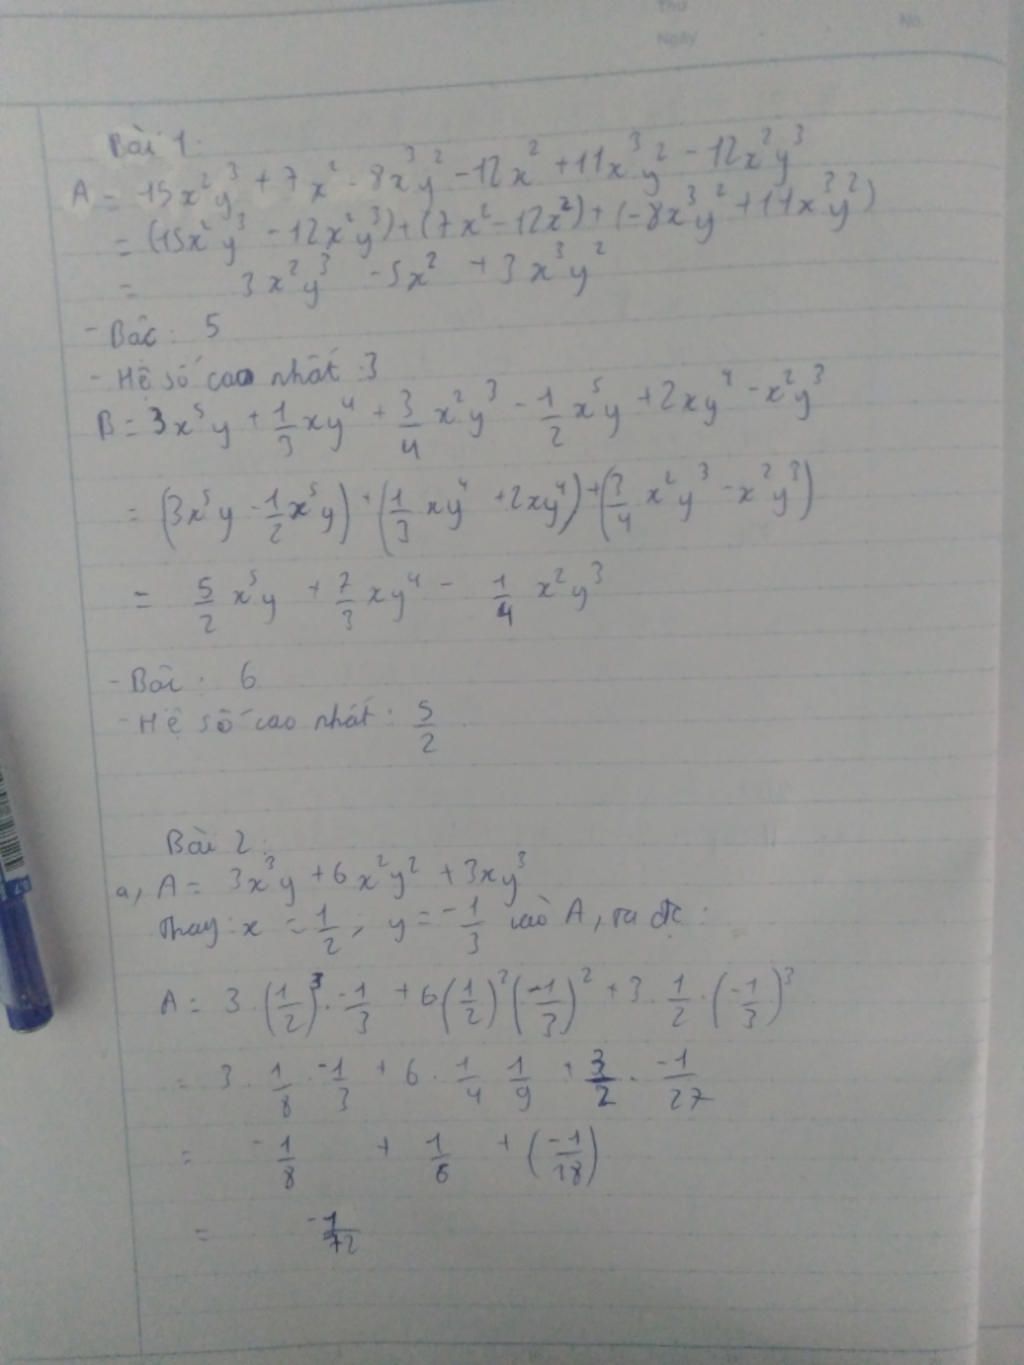 Thứ
No.
Ngày
Bài 1:
A = 15x²y³ + 7x² - 8x³y² - 12x² + 11x³y² - 12x²y³
= (15x²y³ - 12x²y³) + (7x² - 12x²) + (-8x³y² + 11x³y²)
= 3x²y³ - 5x² + 3x³y²
- Bậc: 5
- Hệ số cao nhất: 3
B = 3x⁵y + 1/3 xy⁴ + 3/4 x²y³ - 1/2 x⁵y + 2xy⁴ - x²y³
= (3x⁵y - 1/2 x⁵y) + (1/3 xy⁴ + 2xy⁴) + (3/4 x²y³ - x²y³)
= 5/2 x⁵y + 7/3 xy⁴ - 1/4 x²y³
- Bậc: 6
- Hệ số cao nhất: 5/2
Bài 2:
a, A = 3x³y + 6x²y² + 3xy³
Thay: x = 1/2; y = -1/3 vào A, ta đc:
A = 3 . (1/2)³ . -1/3 + 6 (1/2)² (-1/3)² + 3 . 1/2 . (-1/3)³
= 3 . 1/8 . -1/3 + 6 . 1/4 1/9 + 3/2 . -1/27
= -1/8 + 1/6 + (-1/18)
= -1/72